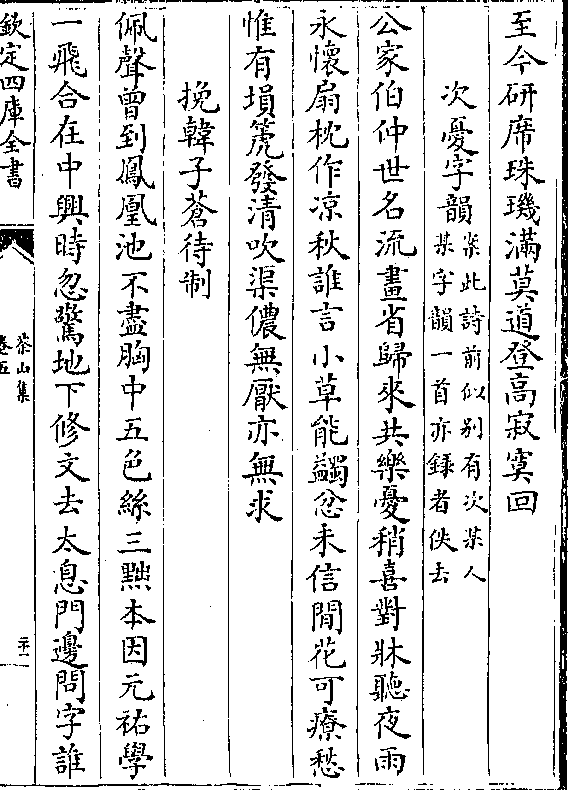 至今研席珠璣滿莫道登高寂寞回
次憂字韻案此詩前似别有次某人
某字韻一首亦錄者佚去
公家伯仲世名流畫省歸來共樂憂稍喜對牀聽夜雨
永懷扇枕作凉秋誰言小草能蠲忿未信閒花可療愁
惟有塤箎發清吹渠儂無厭亦無求
挽韓子蒼待制
佩聲曾到鳳凰池不盡胸中五色絲三黜本因元祐學
一飛合在中興時忽驚地下修文去太息門邊問字誰
欽定四庫全書
茶山集
卷五
二十一